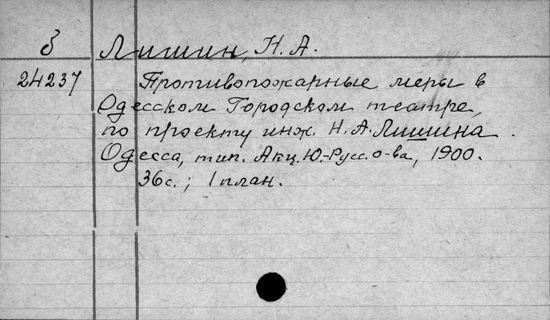 б Лишин, Н. А.
24237 Противопожарные меры в
Одесском Городском театре,
по проекту инж. Н. А. Лишина.
Одесса, тип. Акц. Ю.-Русс. о-ва, 1900.
36с.; 1 план.